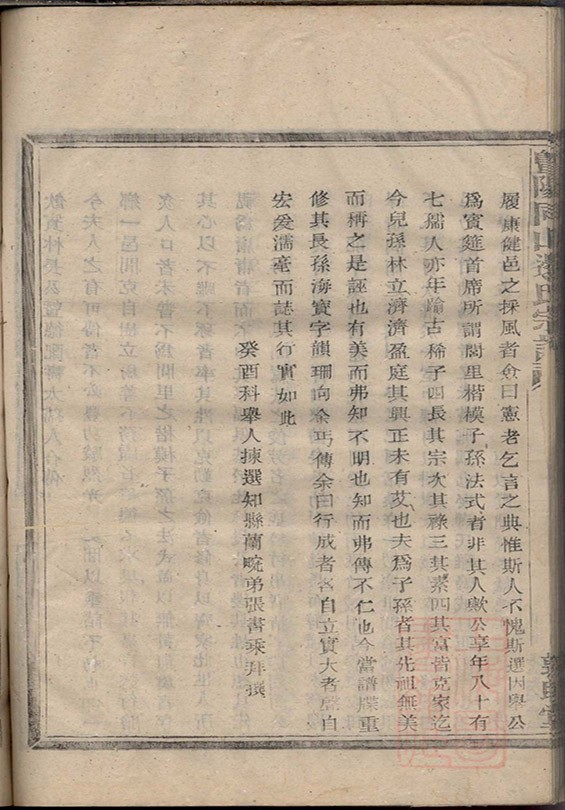 履康健邑之採風者僉曰憲老乞言之典惟斯人不愧斯選因舉公
爲賓筵首席所謂閭里楷模子孫法式者非其人歟公享年八十有
七孺人亦年踰古稀子四長其宗次其祿三其素四其富皆克家迄
今兒孫林立濟濟盈庭其興正未有艾也夫爲子孫者其先祖無美
而稱之是誣也有美而弗知不明也知而弗傳不仁也今當譜牒重
修其長孫海寶字韻珊向余丐傳余曰行成者名自立實大者聲自
宏爰濡毫而誌其行實如此
癸酉科舉人揀選知縣蘭畹弟張書乘拜撰
暨陽 山 氏宗譜